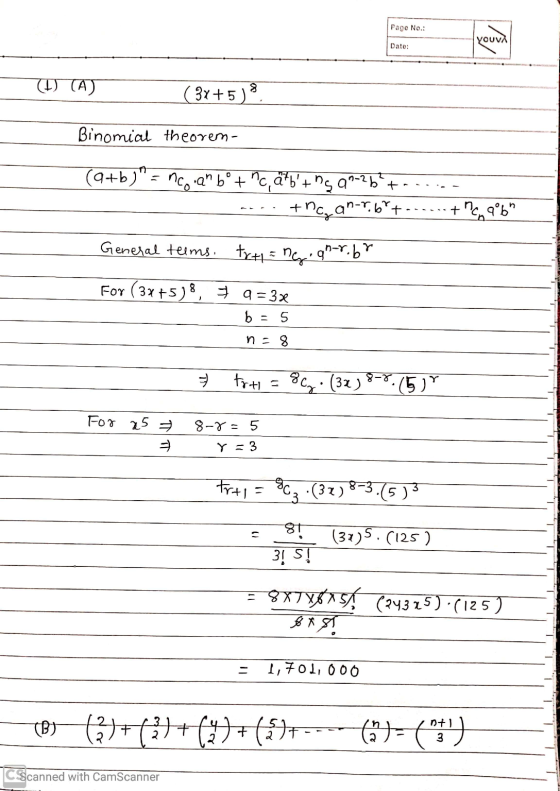 Page No.:
Date:
YOUVA
(1) (A) (3x+5)⁸.
Binomial theorem-
(a+b)ⁿ = nc₀.aⁿb⁰ + nc₁aⁿ⁻¹b¹ + nc₂ aⁿ⁻²b² + - - - - - -
- - - - + ncᵣ aⁿ⁻ʳ.bʳ + - - - - - - + ncₙ a⁰bⁿ
General terms. tᵣ₊₁ = ncᵣ. aⁿ⁻ʳ. bʳ
For (3x+5)⁸, ⇒ a = 3x
b = 5
n = 8
⇒ tᵣ₊₁ = 8cᵣ. (3x)⁸⁻ʳ. (5)ʳ
For x5 ⇒ 8-r = 5
⇒ r = 3
tᵣ₊₁ = 8c₃ .(3x)⁸⁻³.(5)³
= 8!/(3! 5!) (3x)5. (125)
= (8×7×6×5!)/(6×5!) (243x5).(125)
= 1,701,000
(B) (2/2) + (3/2) + (4/2) + (5/2) + - - - - (n/2) = (n+1/3)
CS Scanned with CamScanner